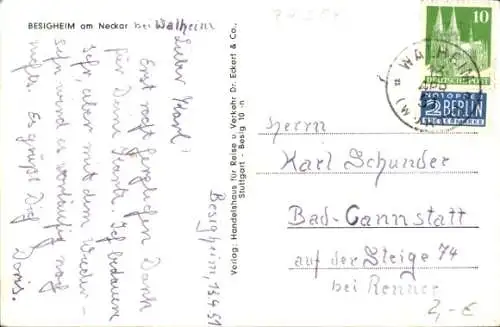 BESIGHEIM am Neckar bei Walheim
Besigheim, 13.4.51
Lieber Karl!
Erst recht herzlichen Dank
für Deine Karte. Ich bedauere
sehr, aber mit dem Wieder-
sehn wird es vorläufig noch
nichts. Es grüßt Dich
Doris.
Verlag: Handelshaus für Reise u. Verkehr Dr. Eckert & Co.,
Stuttgart - Besig 10 n
10
DEUTSCHE POST
NOTOPFER
2 BERLIN
STEUERMARKE
WALHEIM
Herrn
Karl Schunder
Bad-Cannstatt
auf der Steige 74
bei Renner
2,-€